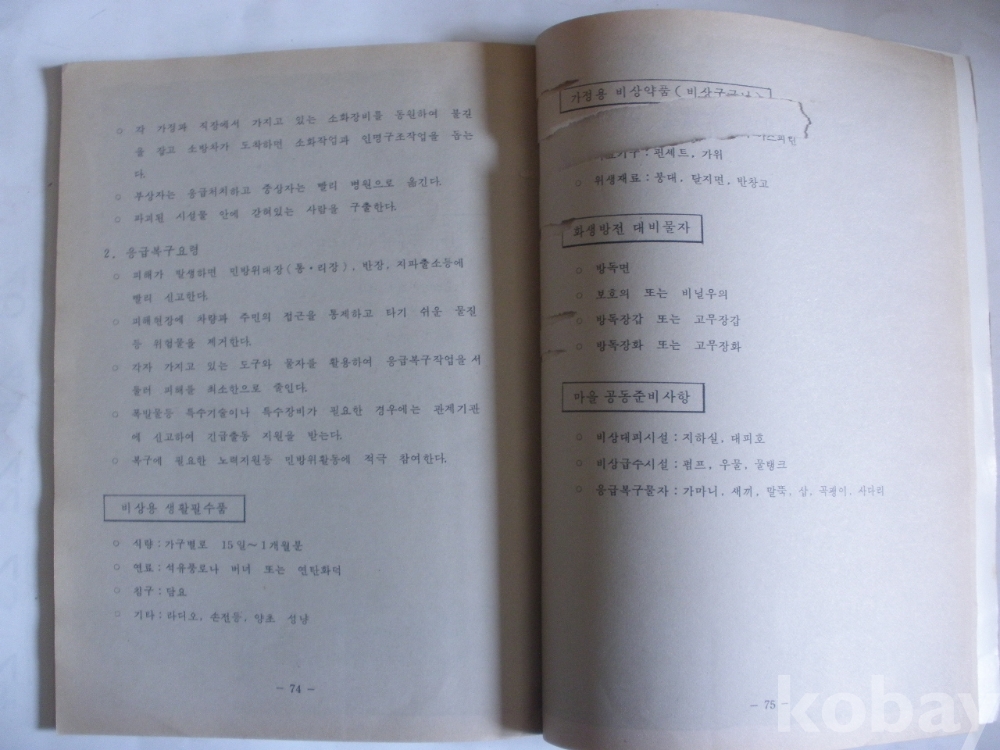 ○ 각 가정과 직장에서 가지고 있는 소화장비를 동원하여 불길
을 잡고 소방차가 도착하면 소화작업과 인명구조작업을 돕는
다.
○ 부상자는 응급처치하고 중상자는 빨리 병원으로 옮긴다.
○ 파괴된 시설물 안에 갇혀있는 사람을 구출한다.
2. 응급복구요령
○ 피해가 발생하면 민방위대장(통·리장), 반장, 지파출소등에
빨리 신고한다.
○ 피해현장에 차량과 주민의 접근을 통제하고 타기 쉬운 물질
등 위험물을 제거한다.
○ 각자 가지고 있는 도구와 물자를 활용하여 응급복구작업을 서
둘러 피해를 최소한으로 줄인다.
○ 폭발물등 특수기술이나 특수장비가 필요한 경우에는 관계기관
에 신고하여 긴급출동 지원을 받는다.
○ 복구에 필요한 노력지원등 민방위활동에 적극 참여한다.
비상용 생활필수품
○ 식량:가구별로 15일~1개월분
○ 연료:석유풍로나 버너 또는 연탄화덕
○ 침구:담요
○ 기타:라디오, 손전등, 양초 성냥
- 74 -
가정용 비상약품(비상구급
핀셋트, 가위
○ 위생재료:붕대, 탈지면, 반창고
화생방전 대비물자
○ 방독면
○ 보호의 또는 비닐우의
○ 방독장갑 또는 고무장갑
○ 방독장화 또는 고무장화
마을 공동준비사항
○ 비상대피시설:지하실, 대피호
○ 비상급수시설:펌프, 우물, 물탱크
○ 응급복구물자:가마니, 새끼, 말뚝, 삽, 곡괭이, 사다리
- 75 -
kobay